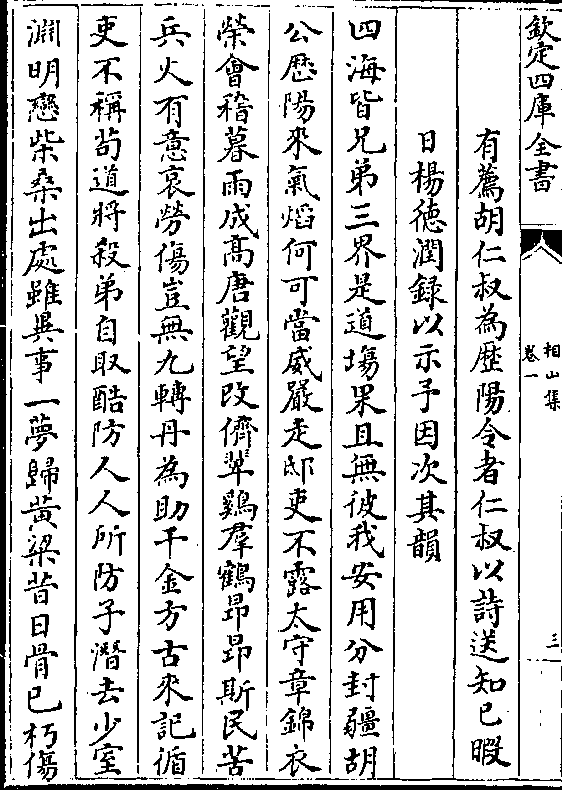 欽定四庫全書
相山集
卷一
三
有薦胡仁叔為歴陽令者仁叔以詩送知已暇
日楊徳潤録以示予因次其韻
四海皆兄弟三界是道塲果且無彼我安用分封疆胡
公歴陽來氣熖何可當威嚴走邸吏不露太守章錦衣
榮會稽暮雨成髙唐觀望改儕輩鷄羣鶴昻昻斯民苦
兵火有意哀勞傷豈無九轉丹為助千金方古來記循
吏不稱茍道將殺弟自取酷防人人所防子潛去少室
淵明戀柴桑出處雖異事一夢歸黄粱昔日骨已朽傷